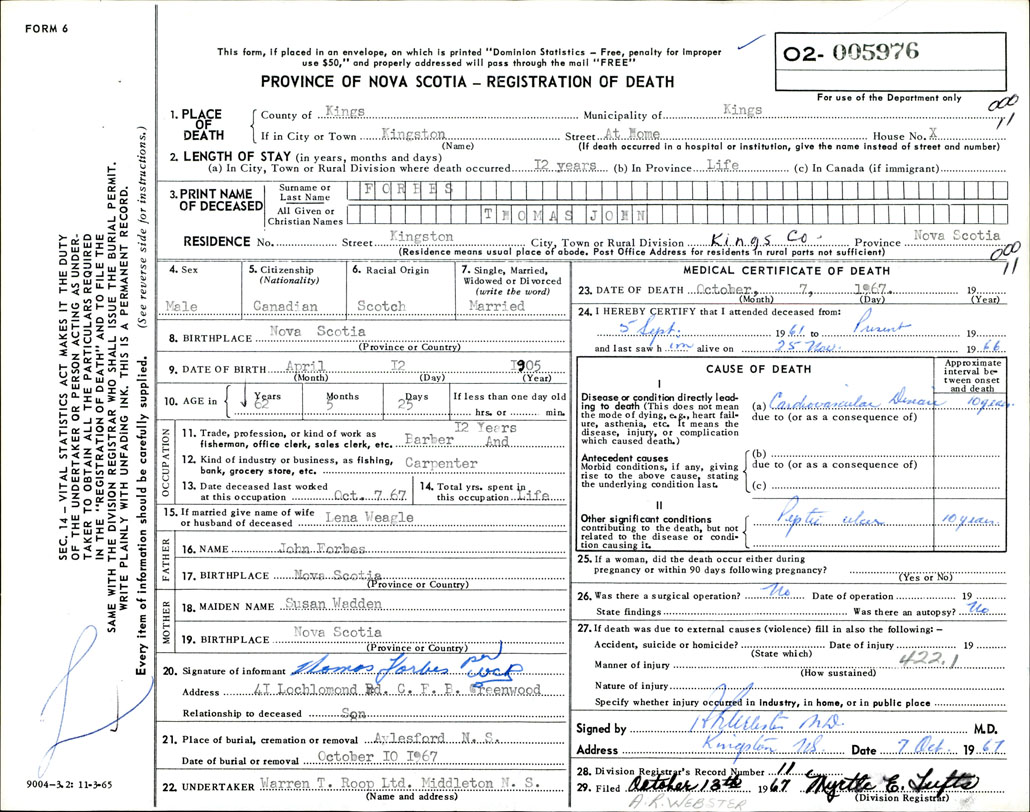 FORM 6
This form, if placed in an envelope, on which is printed "Dominion Statistics – Free, penalty for improper
use $50," and properly addressed will pass through the mail "FREE"
PROVINCE OF NOVA SCOTIA – REGISTRATION OF DEATH
02- 005976
For use of the Department only
000
11
1. PLACE OF DEATH
County of Kings Municipality of Kings
If in City or Town Kingston Street At Home House No. X
(Name) (If death occurred in a hospital or institution, give the name instead of street and number)
2. LENGTH OF STAY (in years, months and days)
(a) In City, Town or Rural Division where death occurred 12 years (b) In Province Life (c) In Canada (if immigrant)
3. PRINT NAME OF DECEASED
Surname or Last Name FORBES
All Given or Christian Names THOMAS JOHN
RESIDENCE No. Street Kingston City, Town or Rural Division Kings Co. Province Nova Scotia
(Residence means usual place of abode. Post Office Address for residents in rural parts not sufficient)
000
11
4. Sex Male
5. Citizenship (Nationality) Canadian
6. Racial Origin Scotch
7. Single, Married, Widowed or Divorced (write the word) Married
8. BIRTHPLACE Nova Scotia
(Province or Country)
9. DATE OF BIRTH April 12 1905
(Month) (Day) (Year)
10. AGE in Years 62 Months 5 Days 25 If less than one day old hrs. or min.
OCCUPATION
12 Years
11. Trade, profession, or kind of work as fisherman, office clerk, sales clerk, etc. Barber And
12. Kind of industry or business, as fishing, bank, grocery store, etc. Carpenter
13. Date deceased last worked at this occupation Oct. 7 67
14. Total yrs. spent in this occupation Life
15. If married give name of wife or husband of deceased Lena Weagle
FATHER
16. NAME John Forbes
17. BIRTHPLACE Nova Scotia
(Province or Country)
MOTHER
18. MAIDEN NAME Susan Wadden
19. BIRTHPLACE Nova Scotia
(Province or Country)
20. Signature of informant Thomas Forbes per
Address 47 Lochlomond Rd. C. F. B. Greenwood
Relationship to deceased Son
21. Place of burial, cremation or removal Aylesford N. S.
Date of burial or removal October 10 1967
22. UNDERTAKER Warren T. Roop Ltd. Middleton N. S.
(Name and address)
MEDICAL CERTIFICATE OF DEATH
23. DATE OF DEATH October, 7, 1967. 19
(Month) (Day) (Year)
24. I HEREBY CERTIFY that I attended deceased from:
5 Sept. 1961 to Present 19
and last saw him alive on 25 Nov. 1966
CAUSE OF DEATH
Approximate interval between onset and death
I
Disease or condition directly leading to death (This does not mean the mode of dying, e.g., heart failure, asthenia, etc. It means the disease, injury, or complication which caused death.)
(a) Cardiovascular Disease 10 years
due to (or as a consequence of)
Antecedent causes
Morbid conditions, if any, giving rise to the above cause, stating the underlying condition last.
(b)
due to (or as a consequence of)
(c)
II
Other significant conditions contributing to the death, but not related to the disease or condition causing it.
Peptic ulcer 10 years
25. If a woman, did the death occur either during pregnancy or within 90 days following pregnancy?
(Yes or No)
26. Was there a surgical operation? No Date of operation 19
State findings Was there an autopsy? No
27. If death was due to external causes (violence) fill in also the following: –
Accident, suicide or homicide? Date of injury 19
(State which) 422.1
Manner of injury
(How sustained)
Nature of injury
Specify whether injury occurred in industry, in home, or in public place
Signed by M.D. M.D.
Address Kingston NS Date 7 Oct 1967
28. Division Registrar's Record Number 11
29. Filed October 13th 1967 Myrtle E. Tufts
(Division Registrar)
A.K. WEBSTER
SEC. 14 – VITAL STATISTICS ACT MAKES IT THE DUTY
OF THE UNDERTAKER OR PERSON ACTING AS UNDER-
TAKER TO OBTAIN ALL THE PARTICULARS REQUIRED
IN THE "REGISTRATION OF DEATH" AND TO FILE THE
SAME WITH THE DIVISION REGISTRAR WHO SHALL ISSUE THE BURIAL PERMIT.
WRITE PLAINLY WITH UNFADING INK. THIS IS A PERMANENT RECORD.
Every item of information should be carefully supplied. (See reverse side for instructions.)
9004-3.2: 11-3-65